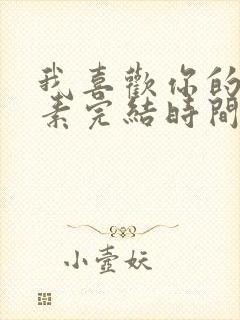 我喜歡你的
素完結時間
小壺妖